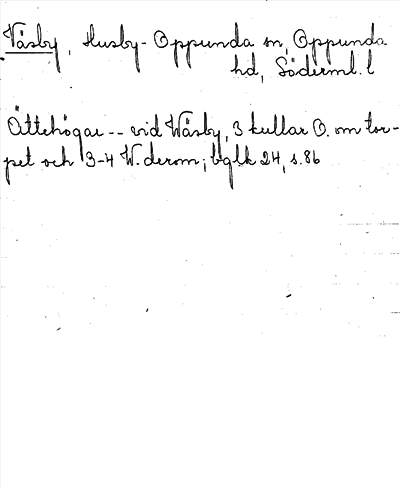 Väsby, Husby-Oppunda sn, Oppunda
hd, Söderml. l
Ättehögar -- vid Wäsby, 3 kullar O. om tor-
pet och 3-4 W. derom; bglk 24, s. 86